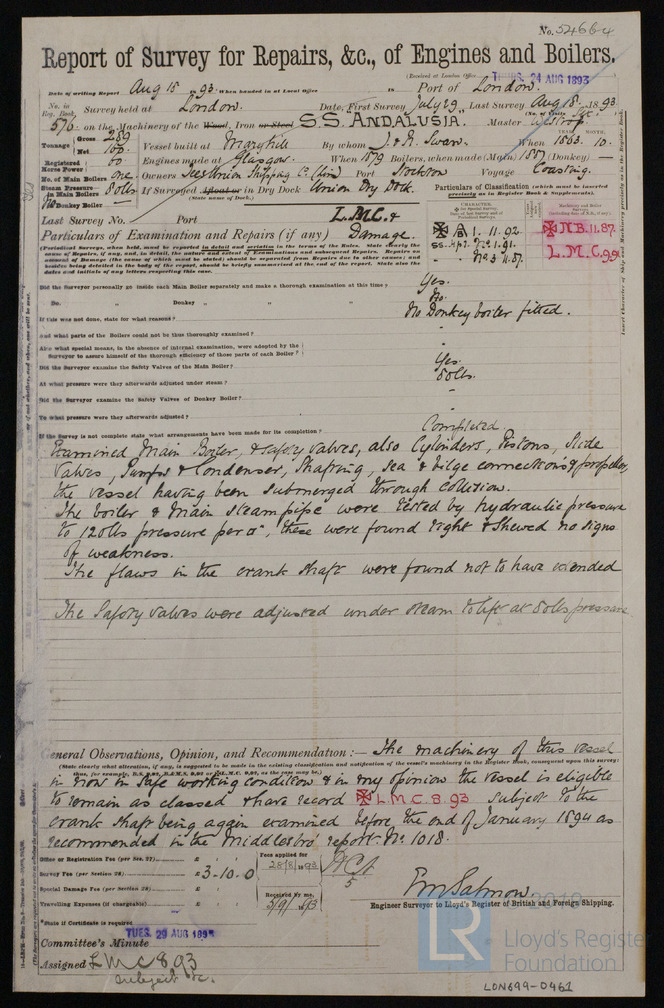 No. 54664
Report of Survey for Repairs, &c., of Engines and Boilers.
(Received at London Office THURS. 24 AUG 1893
Date of writing Report Aug 18 1893 When handed in at Local Office Port of London.
No. in Reg. Book. Survey held at London. Date, First Survey July 29, Last Survey Aug 18. 1893
576 on the Machinery of the Wood, Iron or Steel S.S. ANDALUSIA. Master
Tonnage Gross Net 166 Vessel built at Maryhill By whom J. & R. Swan. When 1863. 10.
Registered Horse Power 60 Engines made at Glasgow. When 1879 Boilers, when made (Main) 1887 (Donkey) —
No. of Main Boilers one. Owners Tees Union Shipping Co (Lim) Port Stockton Voyage Coasting.
Steam Pressure in Main Boilers 80lbs If Surveyed Afloat or in Dry Dock Union Dry Dock.
(State name of Dock.)
No Donkey Boiler —
Particulars of Classification (which must be inserted precisely as in Register Book & Supplements).
Last Survey No. Port L.M.C. &
Particulars of Examination and Repairs (if any) Damage.
A 1. 11. 92
N.B. 11.87.
L.M.C. 92
(Periodical Surveys, when held, must be reported in detail and seriatim in the terms of the Rules. State clearly the
cause of Repairs, if any, and, in detail, the nature and extent of Examinations and subsequent Repairs. Repairs on
account of Damage (the cause of which must be stated) should be separated from Repairs due to other causes; and
besides being detailed in the body of the report, should be briefly summarised at the end of the report. State also the
dates and initials of any letters respecting this case.)
Did the Surveyor personally go inside each Main Boiler separately and make a thorough examination at this time? Yes.
Do. Donkey " " " No.
If this was not done, state for what reasons? No Donkey boiler fitted.
And what parts of the Boilers could not be thus thoroughly examined?
Also what special means, in the absence of internal examination, were adopted by the
Surveyor to assure himself of the thorough efficiency of those parts of each Boiler?
Did the Surveyor examine the Safety Valves of the Main Boiler? Yes.
At what pressure were they afterwards adjusted under steam? 80lbs.
Did the Surveyor examine the Safety Valves of Donkey Boiler? -
To what pressure were they afterwards adjusted? -
If the Survey is not complete state what arrangements have been made for its completion? Completed
Examined Main Boiler, & safety valves, also Cylinders, Pistons, Slide
Valves, Pumps & Condenser, Shafting, sea & bilge connections & propeller,
the vessel having been submerged through Collision.
The boiler & main steampipe were tested by hydraulic pressure
to 120lbs pressure per □", these were found tight & shewed no signs
of weakness.
The flaws in the crank shaft were found not to have extended
The Safety Valves were adjusted under steam to lift at 80lbs pressure.
General Observations, Opinion, and Recommendation:— The machinery of this vessel
(State clearly what alteration, if any, is suggested to be made in the existing classification and notification of the vessel's machinery in the Register Book, consequent upon this survey:
in now in safe working condition & in my opinion the vessel is eligible
to remain as classed & have record L.M.C. 8. 93 subject to the
crank shaft being again examined before the end of January 1894 as
recommended in the Middlesbro' report No. 1018.
Office or Registration Fee (per Sec. 27) £ : :
Survey Fee (per Section 28) £ 3 - 10 . 0
Special Damage Fee (per Section 28) £ : :
Travelling Expenses (if chargeable) £ : :
Fees applied for 28/8/1893
Received by me, 5/9/1893
Engineer Surveyor to Lloyd's Register of British and Foreign Shipping.
*State if Certificate is required
Committee's Minute TUES. 29 AUG 1893
Assigned LMC 8.93
subject &c.
LR
Lloyd's Register
Foundation
LON699-0461